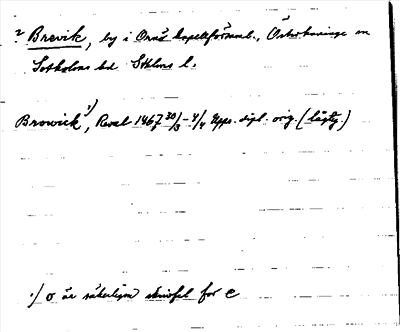 2 Brevik, by i Ornö kapellförsaml., Österhaninge sn
Sotholms hd Sthlms l.
Browick¹), Reval 1467 30/3-4/4 Upps. dipl. orig. (lågty.)
¹) o är säkerligen skrivfel för e